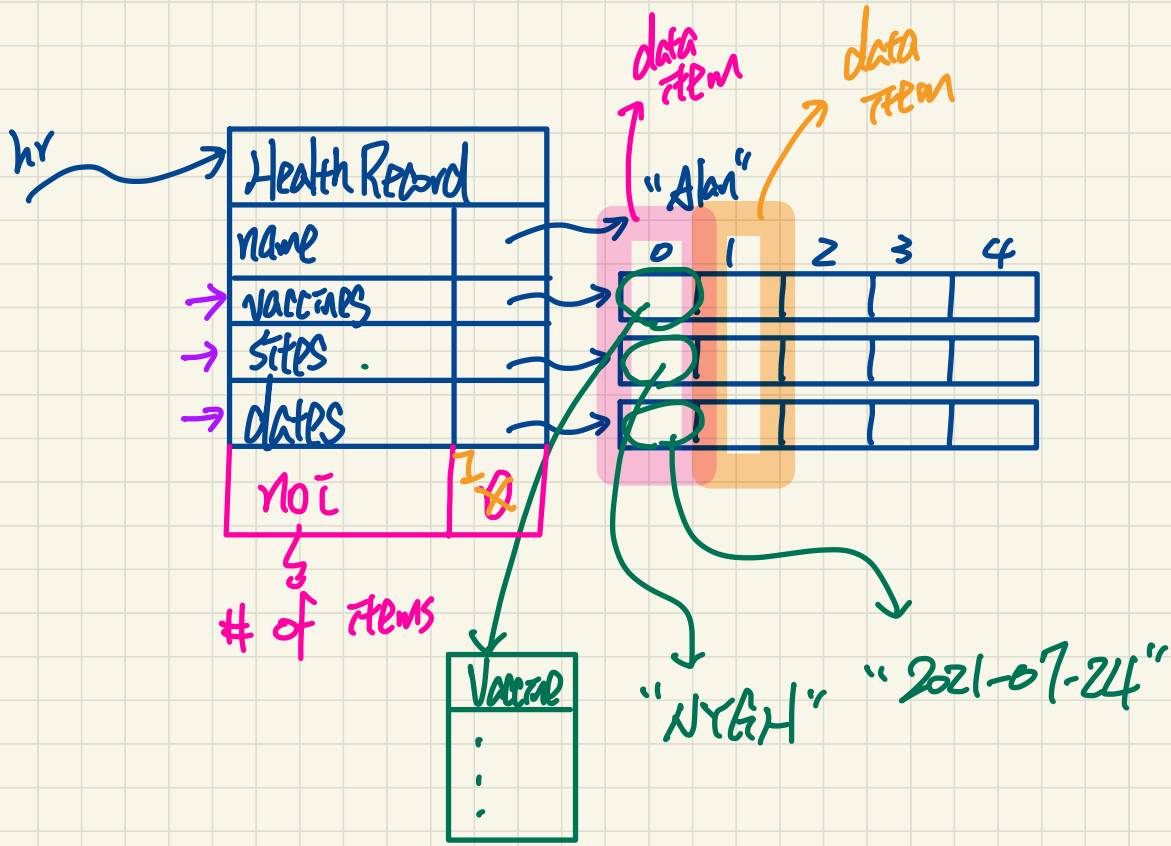 data
item
data
item
hr
Health Record
"Alan"
name
0 1 2 3 4
vaccines
sites
dates
noi
1 0
# of items
Vaccine
"NYGH"
"2021-07-24"